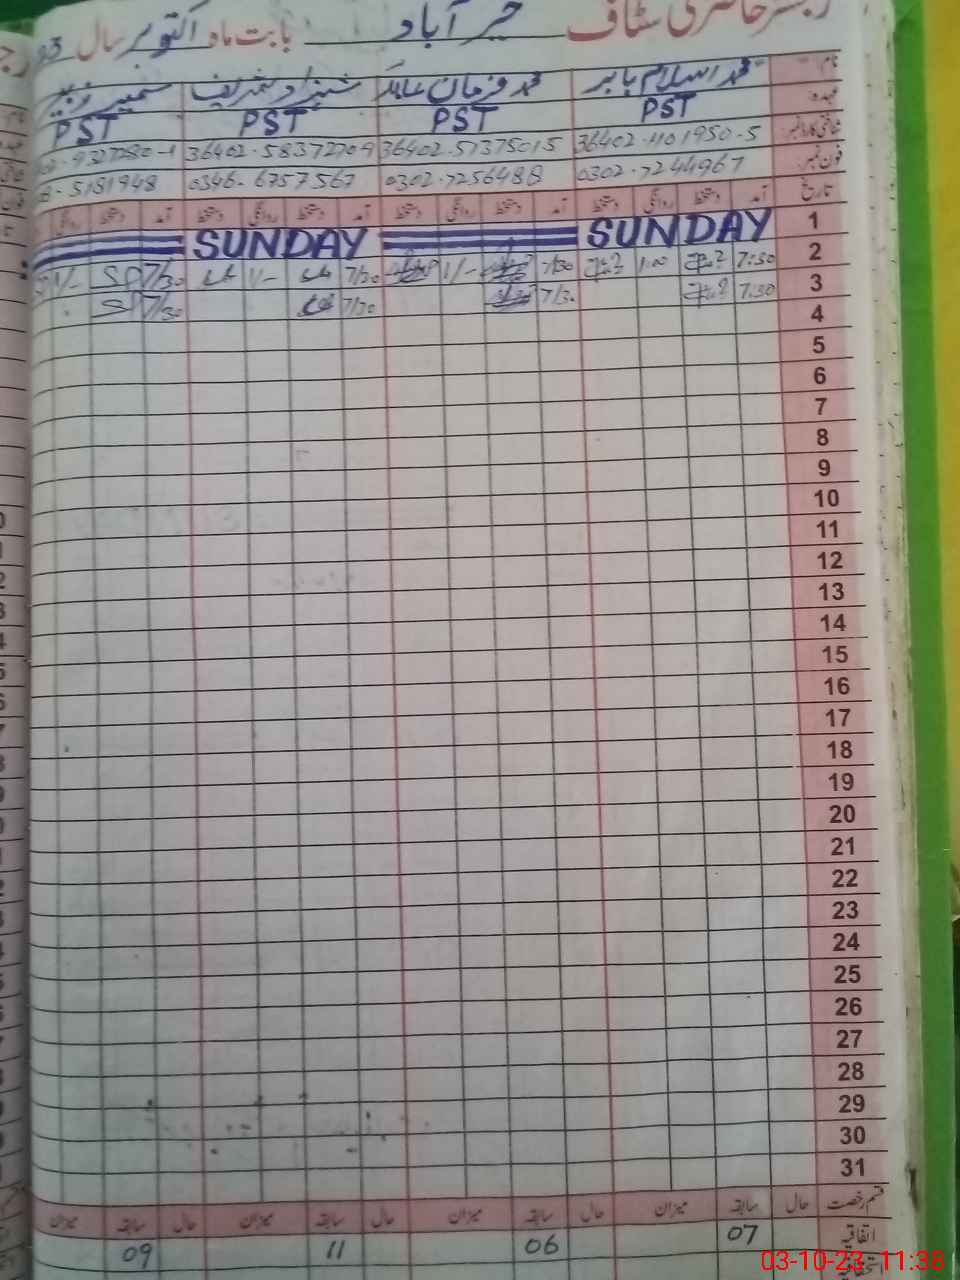 رجسٹر حاضری سٹاف خیر آباد بابت ماہ اکتوبر سال 23
نام محمد اسلام بابر محمد فرمان عابد شہزاد شریف
عہدہ PST PST PST PST
شناختی کارڈ نمبر 36402-1101950-5 36402-57375015 36402-58372709 9327280-1
فون نمبر 0302-7244967 0302-7256488 0346-6757567 8-5181948
تاریخ آمد دستخط روانگی دستخط آمد دستخط روانگی دستخط آمد دستخط روانگی دستخط آمد دستخط روانگی
1 SUNDAY SUNDAY
2 7:30 1:00 7/30 1/- 7/30 1/- 7/30 SP 1/-
3 7:30 7/30 7/30 7/30 SP
4
5
6
7
8
9
10
11
12
13
14
15
16
17
18
19
20
21
22
23
24
25
26
27
28
29
30
31
قسم رخصت حال سابقہ میزان حال سابقہ میزان حال سابقہ میزان حال سابقہ میزان
اتفاقیہ 07 06 11 09
03-10-23 11:38